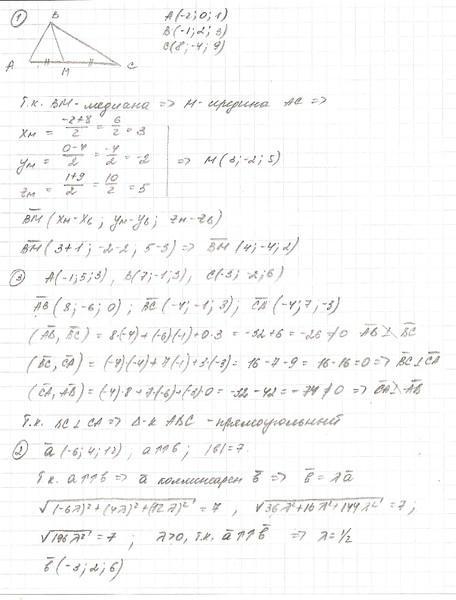 ①
B
A
M
C
A(-2; 0; 1)
B(-1; 2; 3)
C(8; -4; 9)
Т.к. BM - медиана => M - средина AC =>
xм = (-2+8)/2 = 6/2 = 3
yм = (0-4)/2 = -4/2 = -2 => M(3; -2; 5)
zм = (1+9)/2 = 10/2 = 5
BM (xм-xв; yм-yв; zм-zв)
BM (3+1; -2-2, 5-3) => BM (4; -4; 2)
③ A(-1; 5; 3), B(7; -1; 3), C(-3; -2; 6)
AB (8; -6; 0); BC (-4; -1; 3); CA (-4; 7, -3)
(AB, BC) = 8·(-4)+(-6)(-1)+0·3 = -32+6 = -26 ≠ 0 AB ⊥ BC
(BC, CA) = (-4)(-4)+7(-1)+3(-3) = 16-7-9 = 16-16=0 => BC ⊥ CA
(CA, AB) = (-4)·8+7·(-6)+(-3)·0 = -32-42 = -74 ≠ 0 => CA ⊥ AB
Т.к. BC ⊥ CA => Δ-к ABC - прямоугольный
② a (-6; 4; 12), a↑↑b; |b|=7
Т.к. a↑↑b => a коллинеарен b => b = λa
√((-6λ)²+(4λ)²+(12λ)²) = 7, √(36λ²+16λ²+144λ²) = 7;
√(196λ²) = 7; λ>0, т.к. a↑↑b => λ=1/2
b (-3; 2; 6)